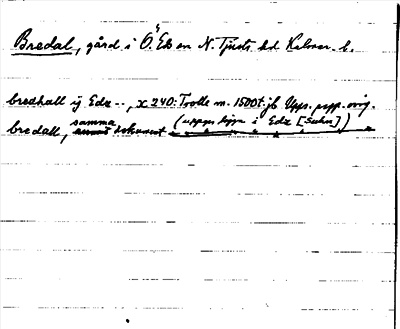 Bredal, gård i Ö. Ed en N. Tjusts hd Kalmar l.
bredhall ÿ Edz --, x 240: Trolle m. 1500t. jb Upps. papp. orig.
bredall, samma dokument (uppges ligga i Edz [Sukn])